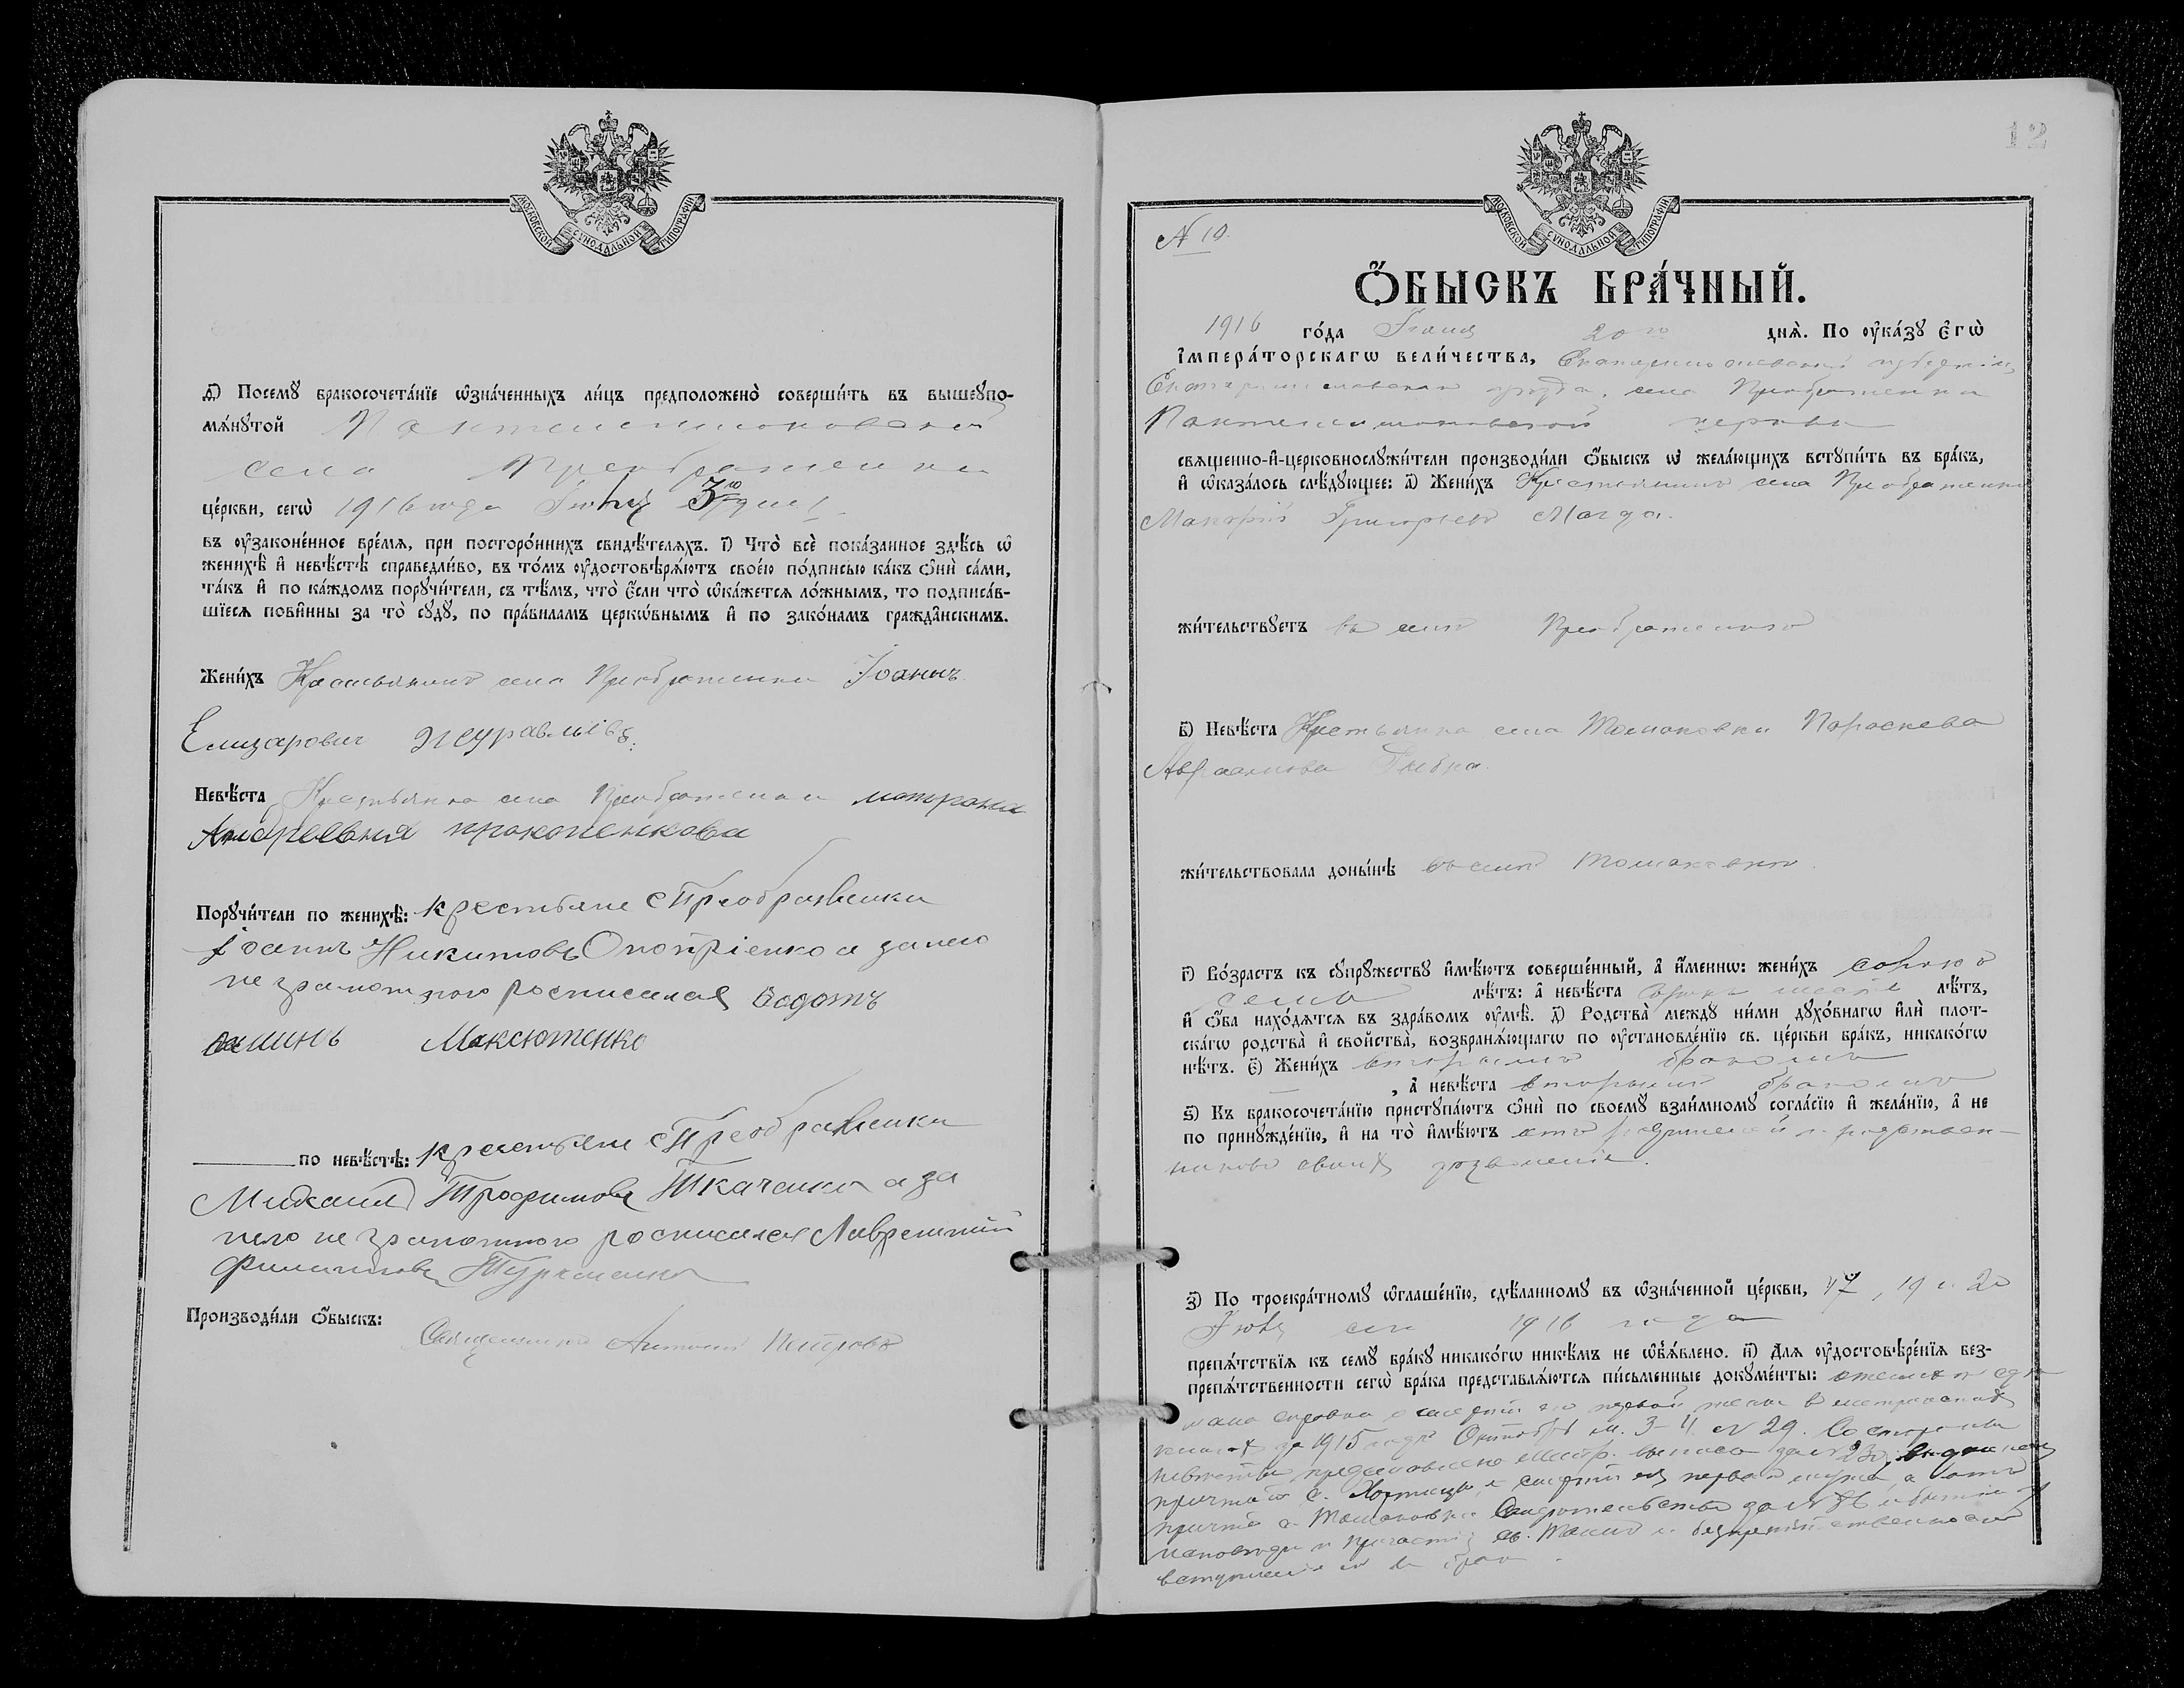 МОСКОВСКОЙ СѴНОДАЛЬНОЙ ТИПОГРАФІИ
д҃) Посемꙋ̀ бракосочета́нїе ѡ҆зна́ченныхъ ли́цъ предположено̀ соверши́ть въ вышеꙋпо-
мѧ́нꙋтой Пантелеимоновской
села Преображенки
це́ркви, сегѡ̀ 1916 года Іюня 3го дня
въ оу҆законе́нное вре́мѧ, при посторо́ннихъ свидѣ́телѧхъ. і҃) Что̀ всѐ пока́занное здѣ́сь ѡ҆
женихѣ̀ и҆ невѣ́стѣ справедли́во, въ то́мъ оу҆достовѣрѧ́ютъ свое́ю по́дписью ка́къ ѻ҆нѝ са́ми,
та́къ и҆ по ка́ждомъ порꙋчи́тели, съ тѣ́мъ, что̀ є҆́сли что̀ ѡ҆ка́жетсѧ ло́жнымъ, то подписа́в-
шїесѧ пови́нны за то̀ сꙋдꙋ̀, по пра́виламъ церкѡ́внымъ и҆ по зако́намъ гражда́нскимъ.
Жени́хъ Крестьянинъ села Преображенки Іоаннъ
Елизарович Журавлівъ
Невѣ́ста Крестьянка села Преображенки матрона
Андреевня прокопенкова
Порꙋчи́тели по женихѣ̀: крестьяне с Преображенки
Іоаннъ Никитовъ Онопріенко а занего
не грамотного росписался Θодотъ
Максютенко
по невѣ́стѣ: крестьяне с Преображенки
Михаилъ Трофимовъ Ткаченко а за
него не грамотного росписался Лаврентий
Филиповъ
Производи́ли ѻ҆́быскъ:
Священникъ Антоній Петровъ
12
МОСКОВСКОЙ СѴНОДАЛЬНОЙ ТИПОГРАФІИ
N 10.
Ѻ҆́БЫСКЪ БРА́ЧНЫЙ.
1916 го́да 20го днѧ̀. По оу҆ка́зꙋ є҆гѡ̀
і҆мпера́торскагѡ вели́чества, Екатеринославской губерніи,
Екатеринославскаго уѣзда, села Преображенки
Пантелеимоновской церкви
свѧщенно-и҆-церковнослꙋжи́тели производи́ли ѻ҆́быскъ ѡ҆ жела́ющихъ встꙋпи́ть въ бра́къ,
и҆ ѡ҆каза́лось слѣ́дꙋющее: а҃) Жени́хъ Крестьянинъ села Преображенки
Макарій Григорьевъ Магда.
жи́тельствꙋетъ въ селѣ Преображенкѣ
в҃) Невѣ́ста Крестьянка села Томаковки Параскева
Авраамова
жи́тельствовала доны́нѣ въ селѣ Томаковкѣ.
г҃) Во́зрастъ къ сꙋпрꙋ́жествꙋ и҆мѣ́ютъ соверше́нный, а҆ и҆́меннѡ: жени́хъ сорокъ
семь лѣ́тъ: а҆ невѣ́ста сорокъ шесть лѣ́тъ,
и҆ ѻ҆́ба нахо́дѧтсѧ въ здра́вомъ оу҆мѣ̀. д҃) Родства̀ междꙋ ни́ми дꙋхо́внагѡ и҆лѝ плот-
ска́гѡ родства̀ и҆ сво́йства, возбранѧ́ющагѡ по оу҆становле́нїю св. це́ркви бра́къ, никако́гѡ
нѣ́тъ. є҃) Жени́хъ вторымъ бракомъ
, а҆ невѣ́ста вторымъ бракомъ
ѕ҃) Къ бракосочета́нїю пристꙋпа́ютъ ѻ҆нѝ по своемꙋ̀ взаи́мномꙋ согла́сїю и҆ жела́нїю, а҆ не
по принꙋжде́нїю, и҆ на то̀ и҆мѣ́ютъ отъ родителей и родствен-
никовъ своихъ
з҃) По троекра́тномꙋ ѡ҆глаше́нїю, сдѣ́ланномꙋ въ ѡ҆зна́ченной це́ркви, 17, 19 и 20
сего 1916 года
препѧ́тствїѧ къ семꙋ̀ бра́кꙋ никако́гѡ никѣ́мъ не ѡ҆б̾ѧ́влено. и҃) Длѧ оу҆достовѣре́нїѧ без-
препѧ́тственности сегѡ̀ бра́ка представлѧ́ютсѧ пи́сьменные докꙋме́нты:
справка о смерти его первой жены в метрическихъ
книгахъ за 1915 годъ Октября м. 3-4 N 29. Со стороны
невѣсты представлено метр. выпись за N 23, выданная
причтомъ с. Хортицы, о смерти ея первого мужа, а отъ
причта с. Томаковки Свидѣтельство за N
исповѣди и причастія св. Таинъ и безпрепятственности
вступленія въ бракъ.